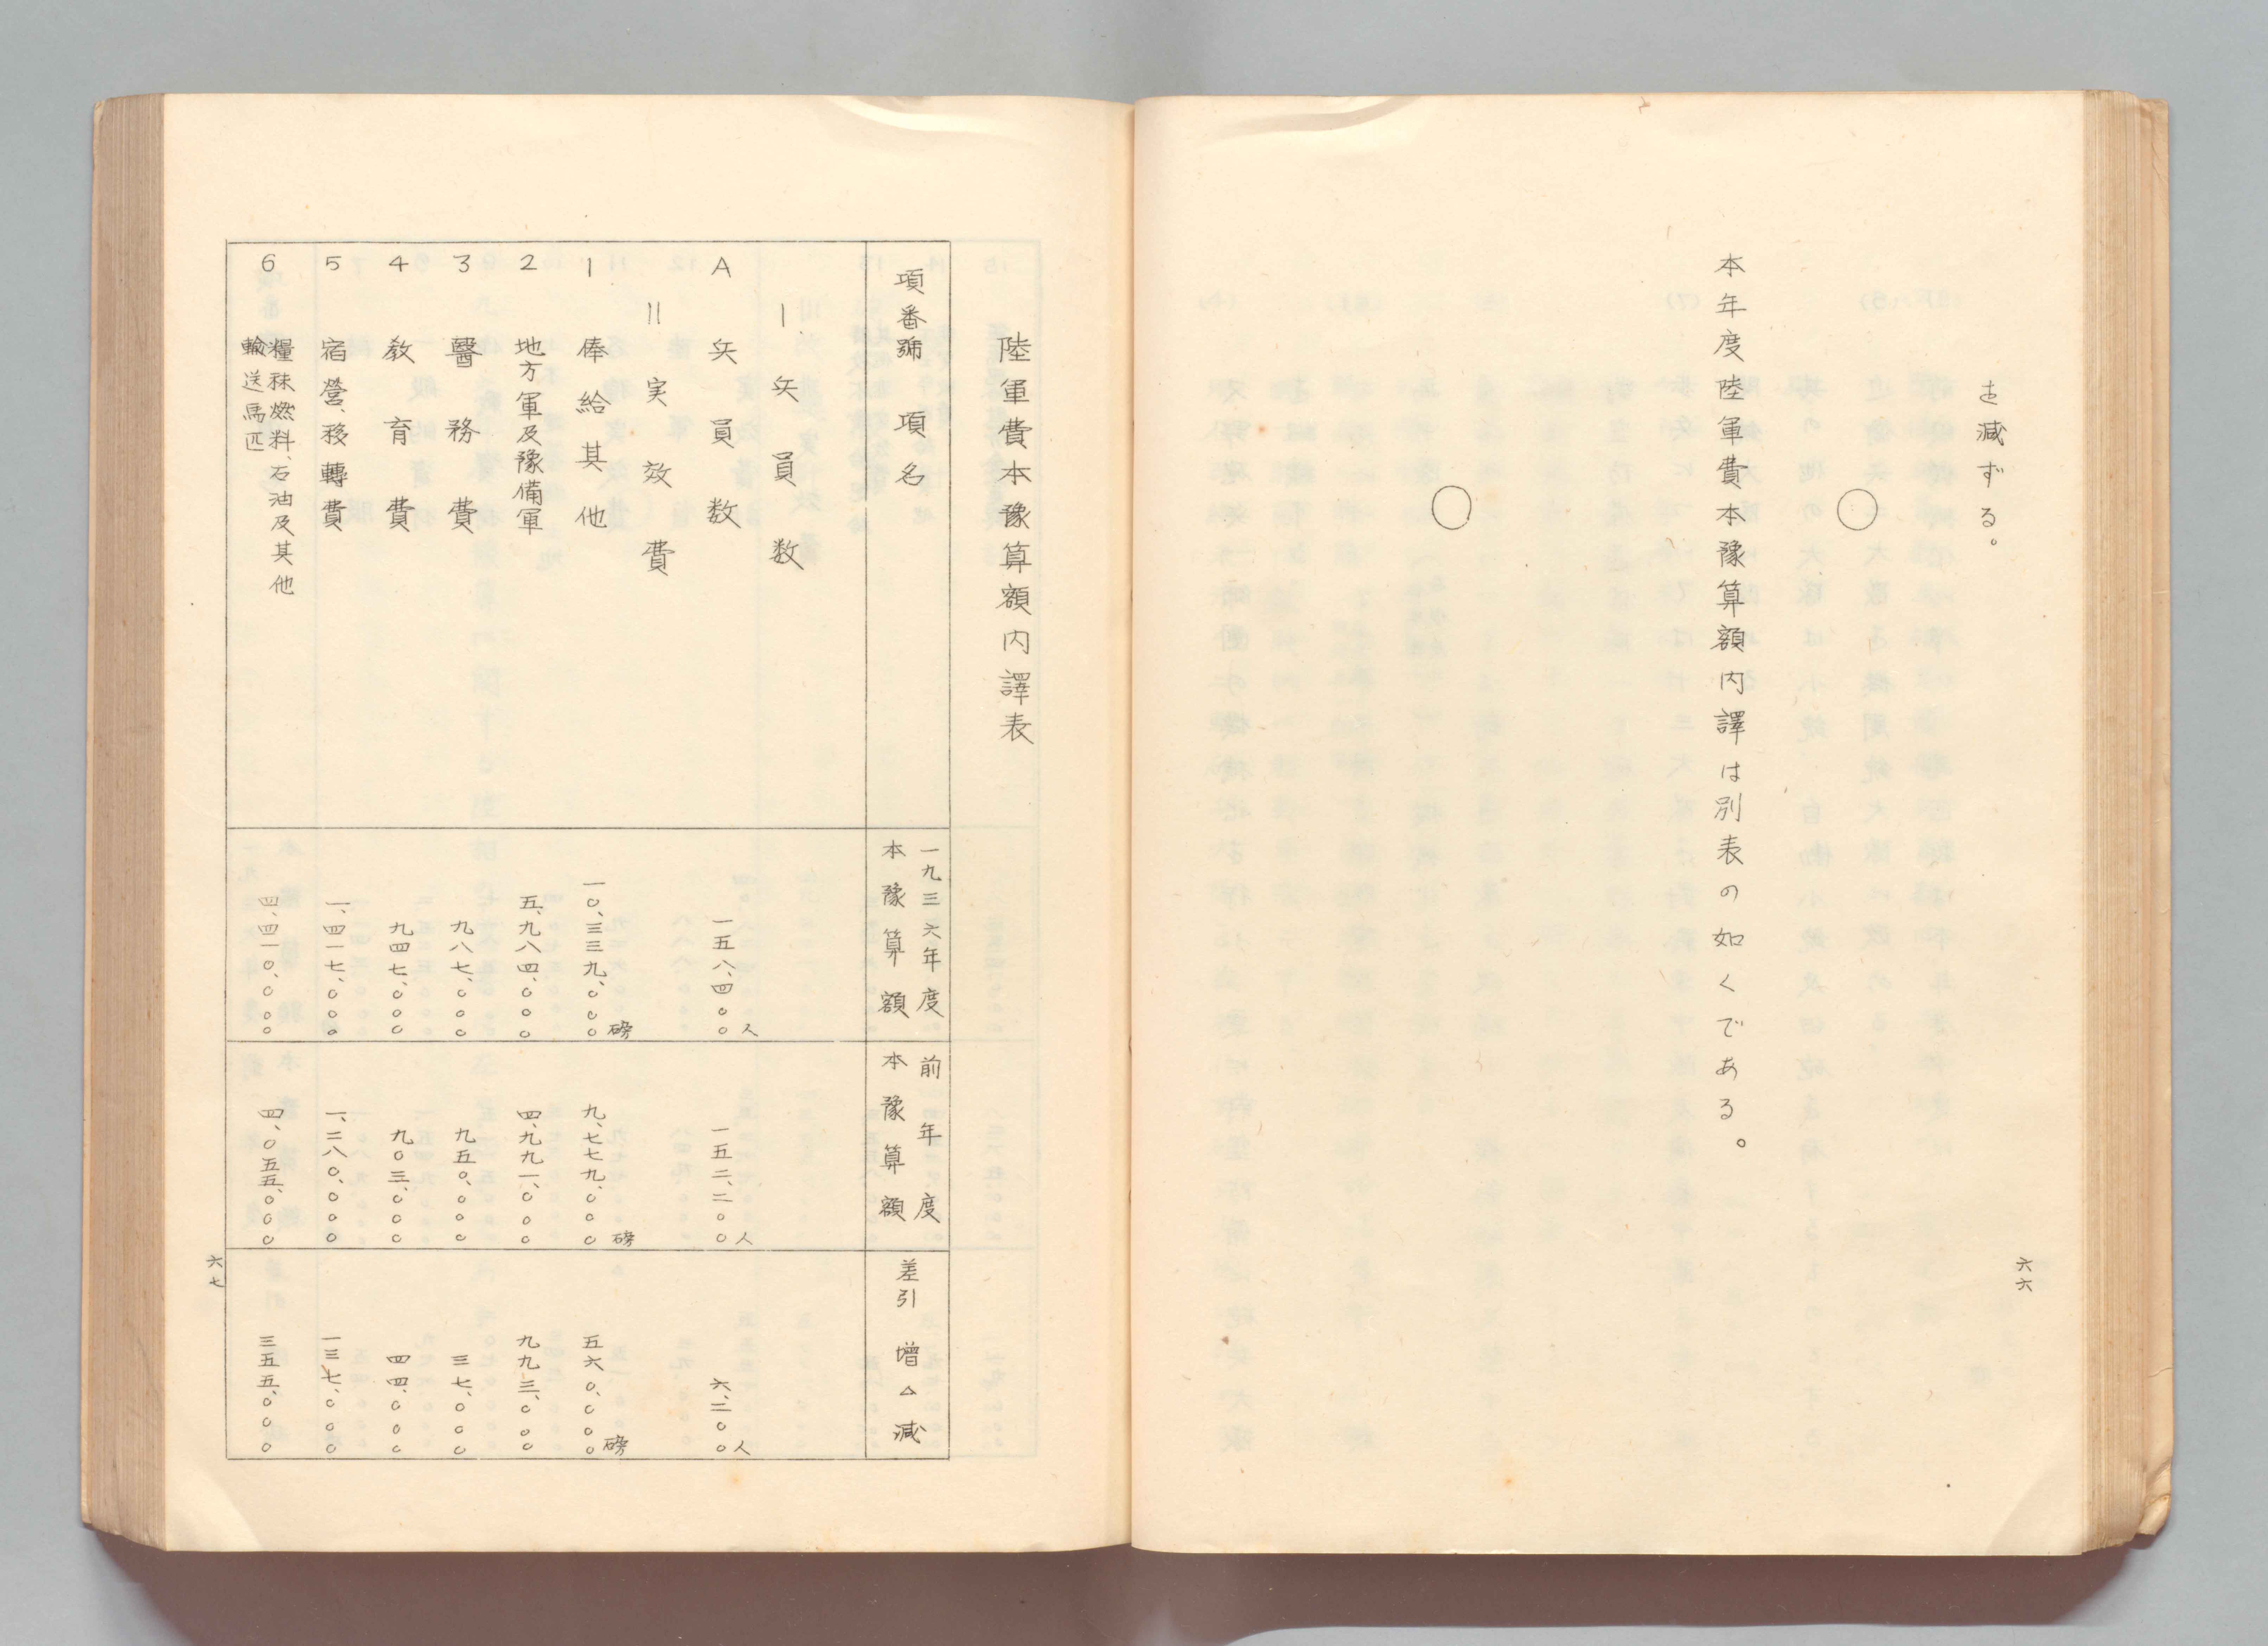 を減ずる。
〇
本年度陸軍費本豫算額内譯は別表の如くである。
〇
六六
陸軍費本豫算額内譯表
項番號 項名
一九三六年度
本豫算額
前年度
本豫算額
差引 增△減
I 兵員数
A 兵員数 一五八、四〇〇人 一五二、二〇〇人 六、二〇〇人
II 実效費
1 俸給其他 一〇、三三九、〇〇〇磅 九、七七九、〇〇〇磅 五六〇、〇〇〇磅
2 地方軍及豫備軍 五、九八四、〇〇〇 四、九九一、〇〇〇 九九三、〇〇〇
3 醫務費 九八七、〇〇〇 九五〇、〇〇〇 三七、〇〇〇
4 敎育費 九四七、〇〇〇 九〇三、〇〇〇 四四、〇〇〇
5 宿營、移轉費 一、四一七、〇〇〇 一、二八〇、〇〇〇 一三七、〇〇〇
6 糧秣燃料、石油及其他
輸送馬匹 四、四一〇、〇〇〇 四、〇五五、〇〇〇 三五五、〇〇〇
六七